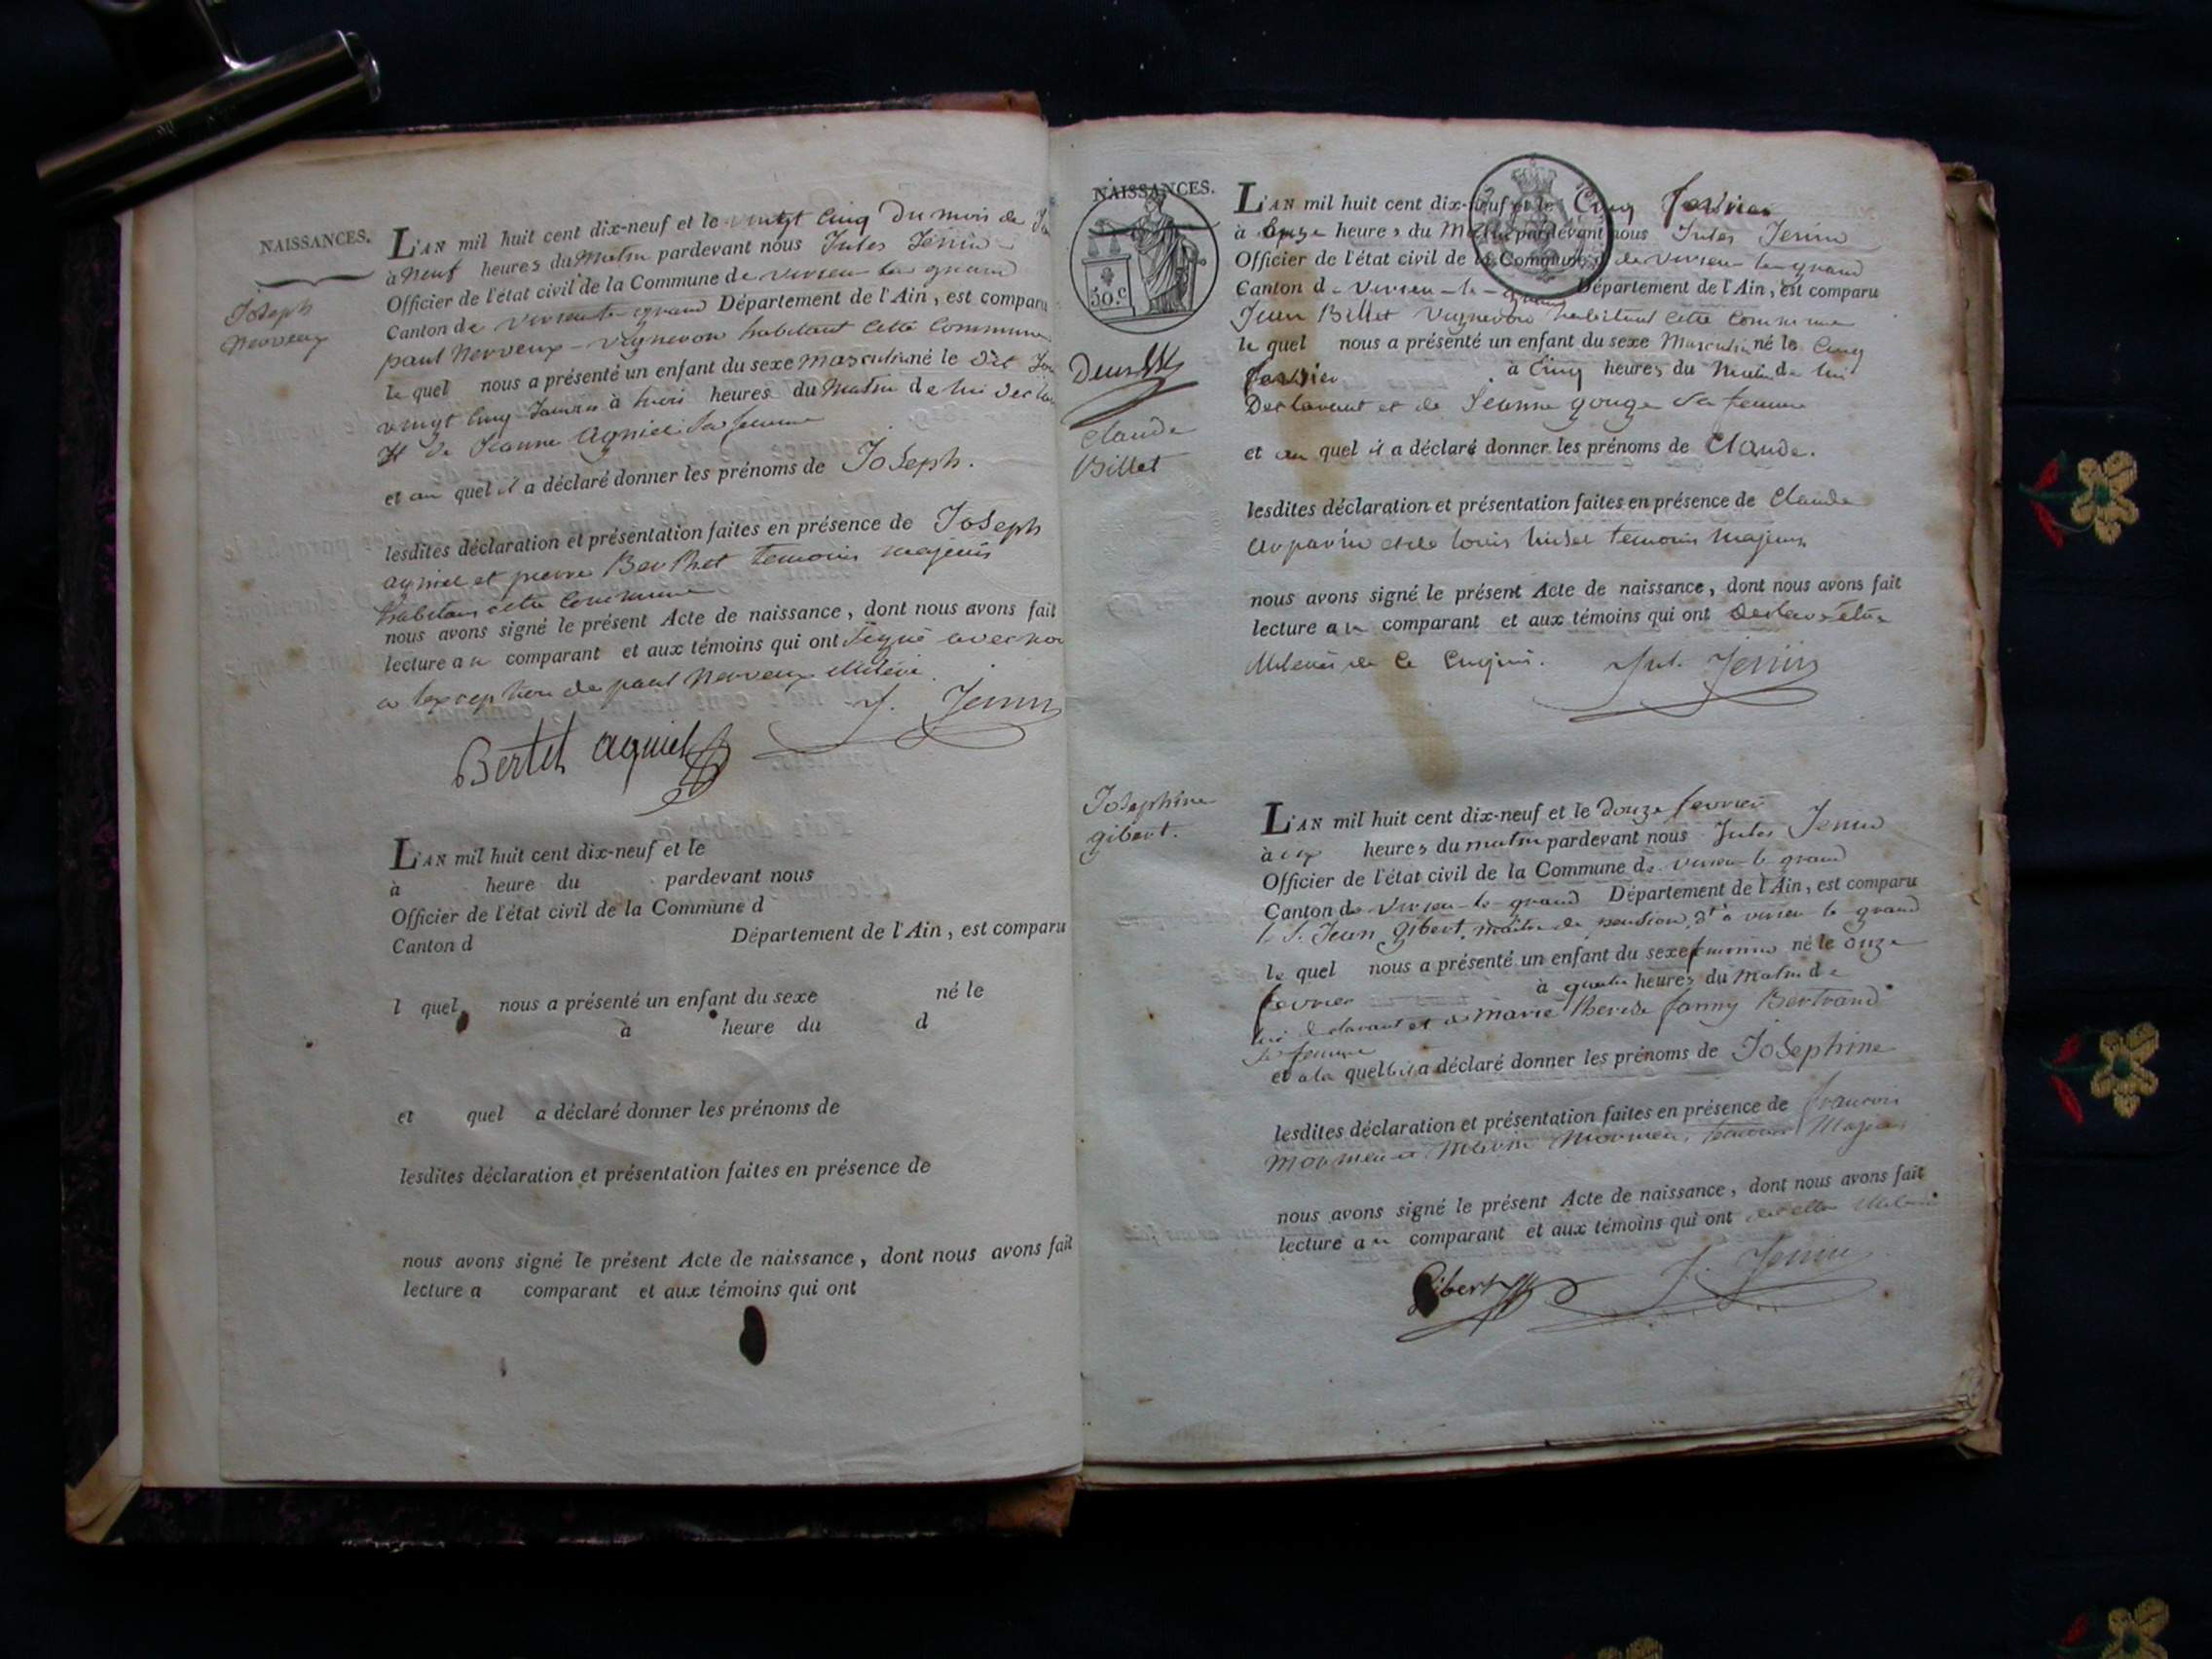 NAISSANCES.
Joseph
Nerveux
L'AN mil huit cent dix-neuf et le vingt cinq du mois de
à neuf heures du Matin pardevant nous Jules Jenin
Officier de l'état civil de la Commune de virieu le grand
Canton de virieu le grand Département de l'Ain, est comparu
paul Nerveux vigneron habitant cette Commune
le quel nous a présenté un enfant du sexe masculin né le dit
vingt cinq Janvier à trois heures du Matin de lui
et de Jeanne Agniel sa femme
et au quel il a déclaré donner les prénoms de Joseph.
lesdites déclaration et présentation faites en présence de Joseph
agniel et pierre Berthet temoins majeurs
habitans cette Commune
nous avons signé le présent Acte de naissance, dont nous avons fait
lecture au comparant et aux témoins qui ont signé avec
a lexception de paul Nerveux
J. Jenin
Bertet agniel
L'AN mil huit cent dix-neuf et le
à heure du pardevant nous
Officier de l'état civil de la Commune d
Canton d Département de l'Ain, est comparu
l quel nous a présenté un enfant du sexe né le
à heure du d
et quel a déclaré donner les prénoms de
lesdites déclaration et présentation faites en présence de
nous avons signé le présent Acte de naissance, dont nous avons fait
lecture a comparant et aux témoins qui ont
NAISSANCES.
50.c
Claude
Billet
L'AN mil huit cent dix-neuf et le Cinq fevrier
à heures du Matin pardevant nous Jules Jenin
Officier de l'état civil de la Commune de virieu le grand
Canton de virieu-le-grand Département de l'Ain, est comparu
Jean Billet vigneron habitant cette Commune
le quel nous a présenté un enfant du sexe Masculin né le Cinq
fevrier à Cinq heures du Matin de lui
Declarant et de Jeanne gouge sa femme
et au quel il a déclaré donner les prénoms de Claude.
lesdites déclaration et présentation faites en présence de Claude
et de louis temoins Majeurs
nous avons signé le présent Acte de naissance, dont nous avons fait
lecture au comparant et aux témoins qui ont
de ce Enquis. Jul. Jenin
Josephine
gibert.
L'AN mil huit cent dix-neuf et le Douze fevrier
à heures du matin pardevant nous Jules Jenin
Officier de l'état civil de la Commune de virieu-le grand
Canton de Virieu-le-grand Département de l'Ain, est comparu
le S. Jean gibert, maître de pension, à virieu le grand
le quel nous a présenté un enfant du sexe feminin né le onze
fevrier à quatre heures du Matin de
lui declarant et de marie therese fanny Bertrand
sa femme
et a la quelle il a déclaré donner les prénoms de Josephine
lesdites déclaration et présentation faites en présence de francois
et temoins Majeurs
nous avons signé le présent Acte de naissance, dont nous avons fait
lecture au comparant et aux témoins qui ont
Gibert J. Jenin